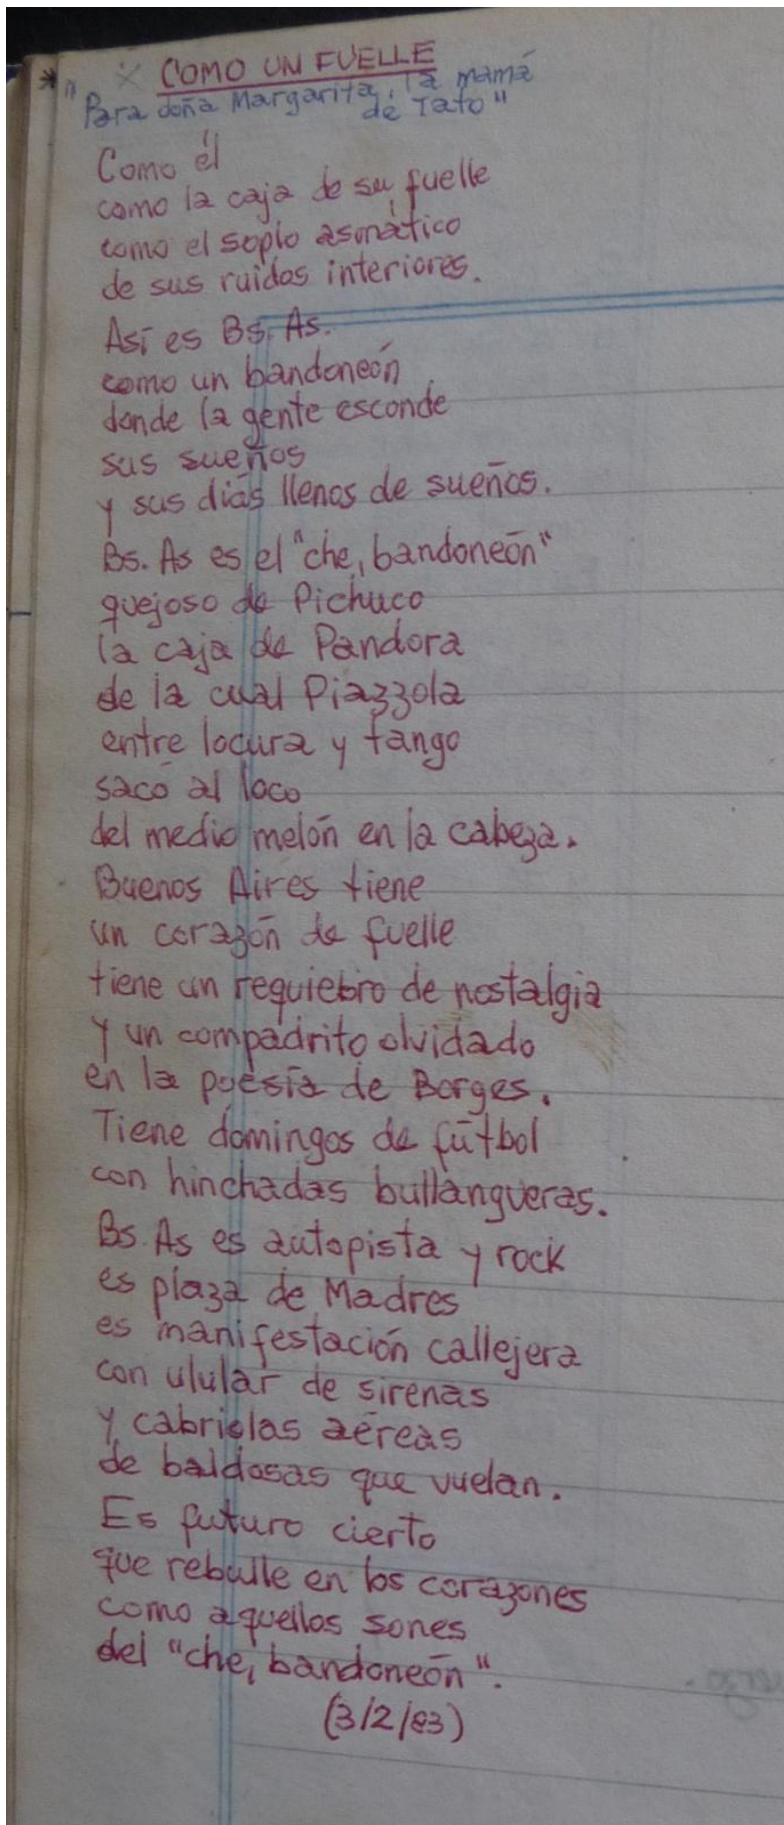 * " x COMO UN FUELLE
Para doña Margarita, la mamá
de Tato"
Como él
como la caja de su fuelle
como el soplo asmático
de sus ruidos interiores.
Así es Bs. As.
como un bandoneón
donde la gente esconde
sus sueños
y sus días llenos de sueños.
Bs. As es el "che, bandoneón"
quejoso de Pichuco
la caja de Pandora
de la cual Piazzola
entre locura y tango
sacó al loco
del medio melón en la cabeza.
Buenos Aires tiene
un corazón de fuelle
tiene un requiebro de nostalgia
y un compadrito olvidado
en la poesía de Borges.
Tiene domingos de fútbol
con hinchadas bullangueras.
Bs. As es autopista y rock
es plaza de Madres
es manifestación callejera
con ulular de sirenas
y cabriolas aéreas
de baldosas que vuelan.
Es futuro cierto
que rebulle en los corazones
como aquellos sones
del "che, bandoneón".
(3/2/83)